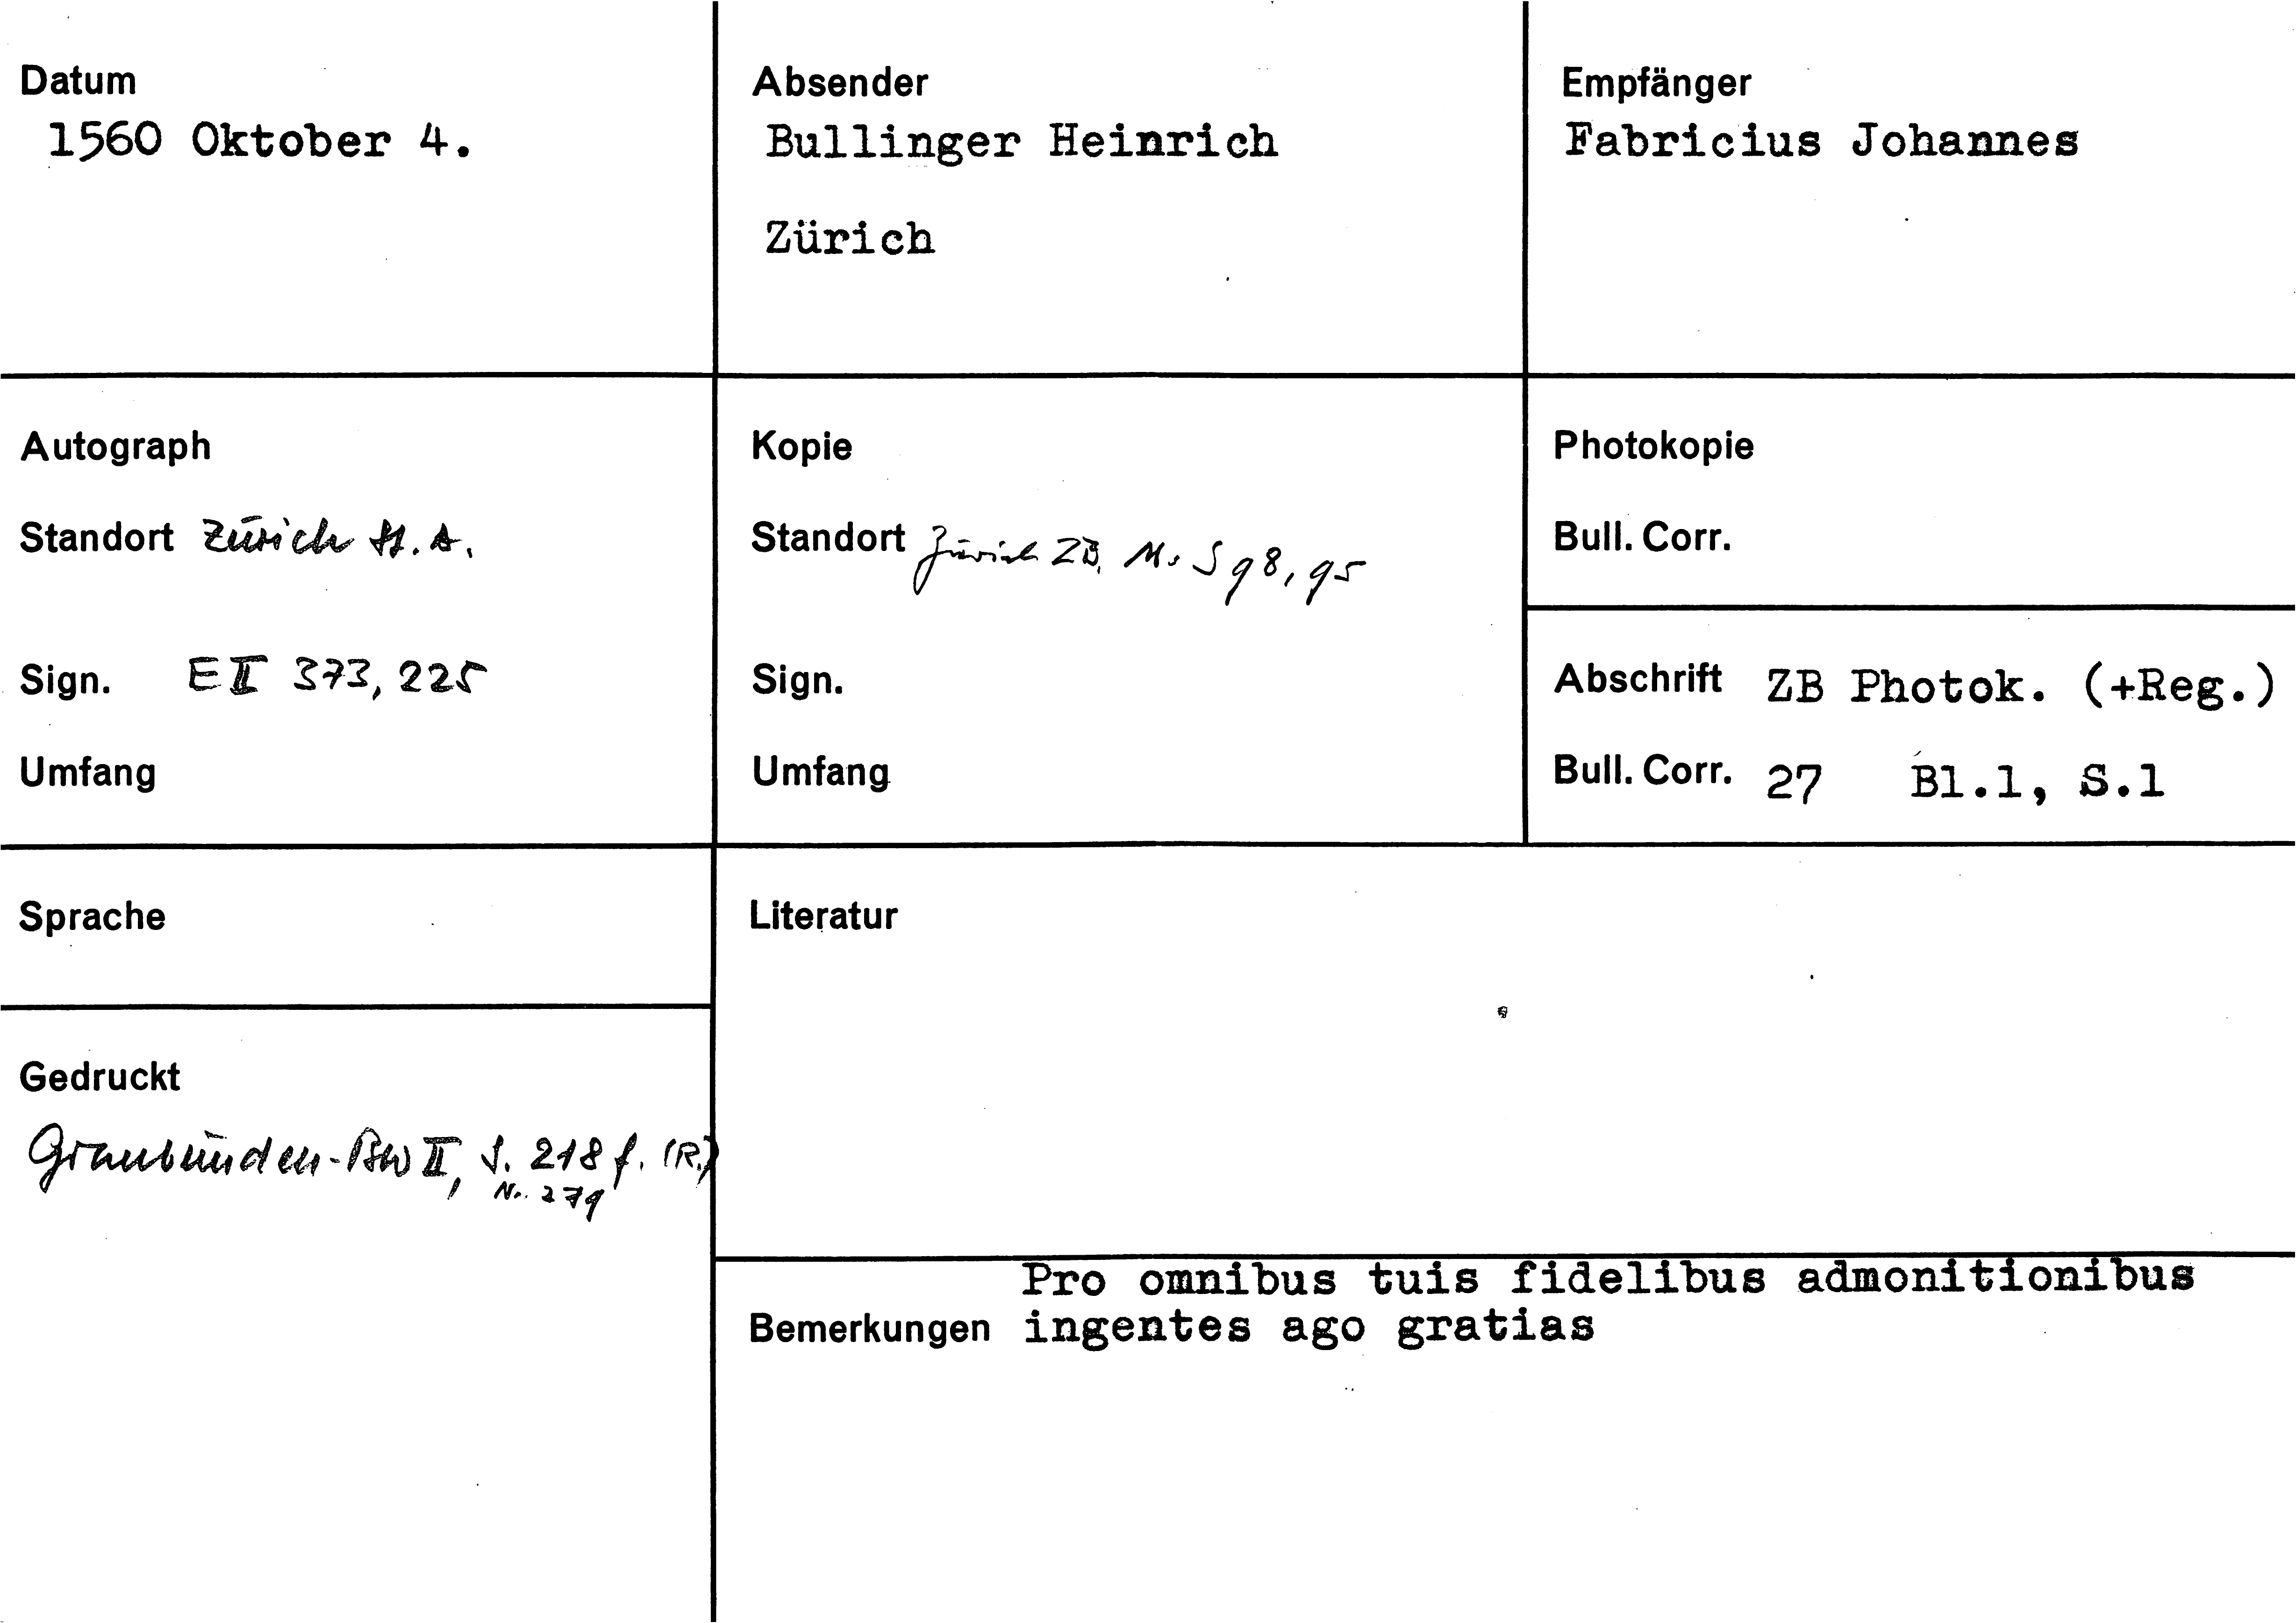 Datum
1560 Oktober 4.
Absender
Bullinger Heinrich
Zürich
Empfänger
Fabricius Johannes
Autograph
Standort Zürich St. A.
Sign. E II 373, 225
Umfang
Kopie
Standort Zürich ZB, Ms S 98, 95
Sign.
Umfang
Photokopie
Bull. Corr.
Abschrift ZB Photok. (+Reg.)
Bull. Corr. 27 Bl.1, S.1
Sprache
Gedruckt
Graubünden-BW II, S. 218 f. (R.)
Nr. 279
Literatur
Pro omnibus tuis fidelibus admonitionibus
Bemerkungen ingentes ago gratias